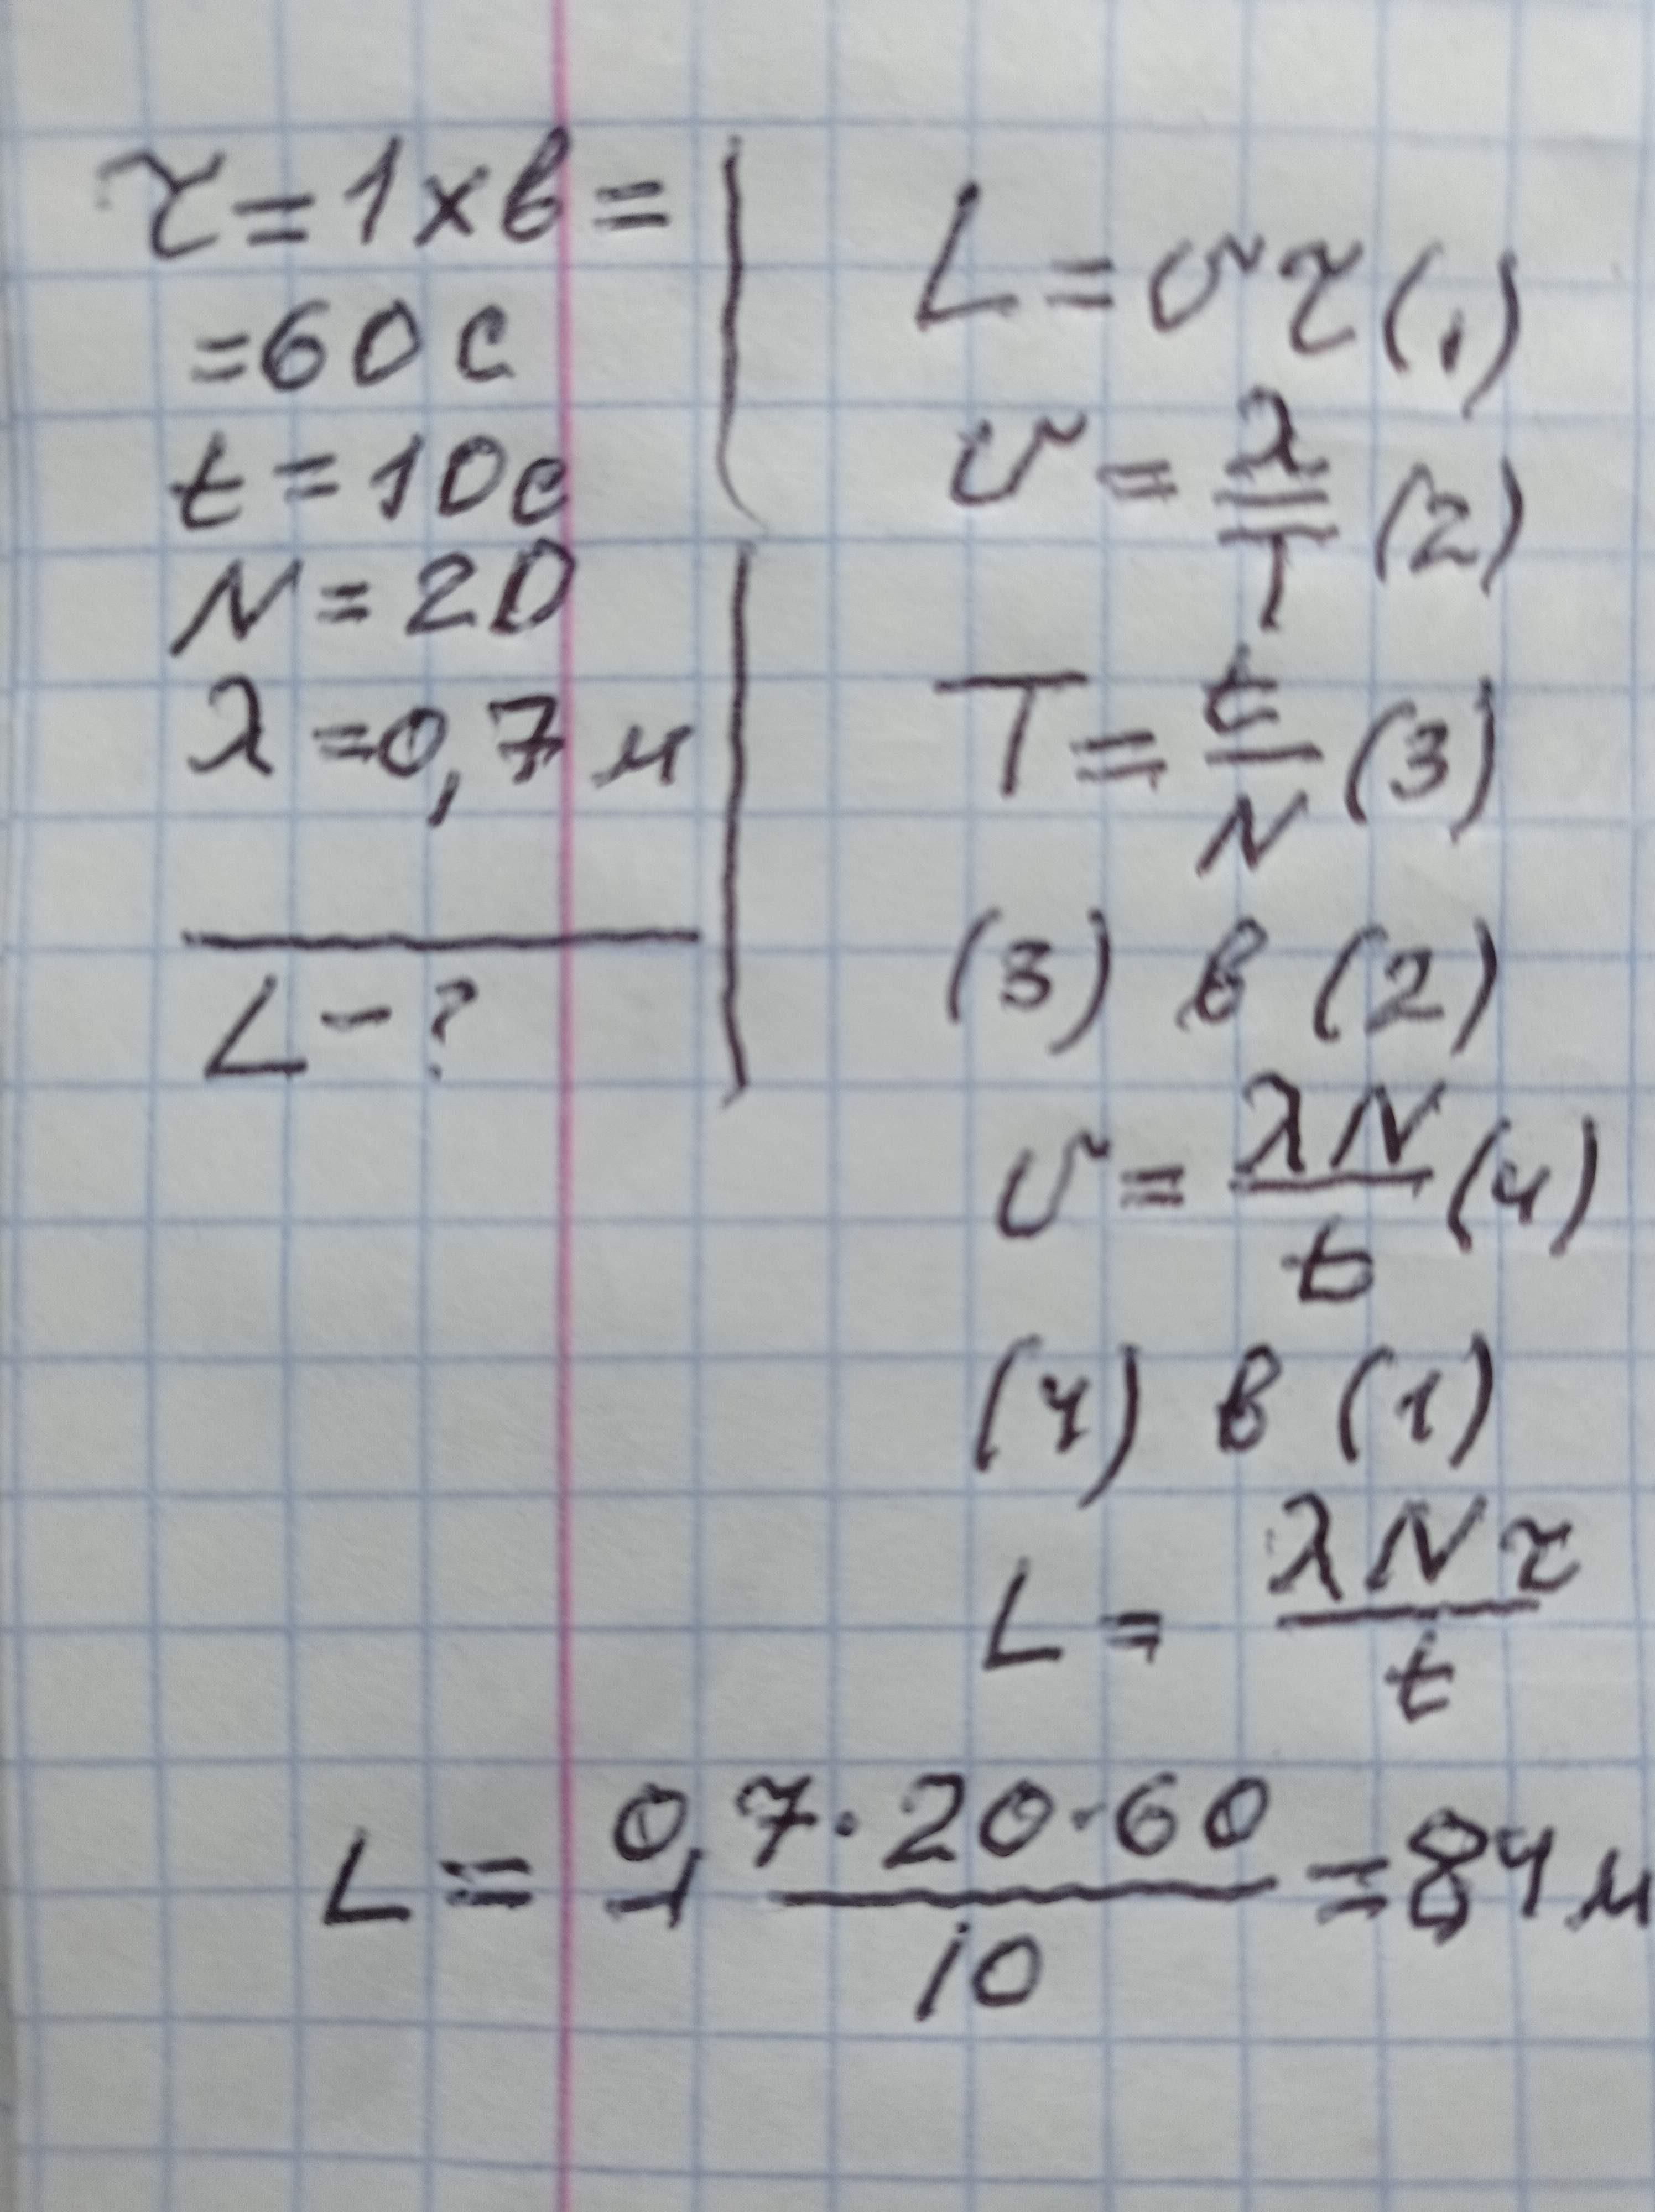 τ = 1 хв =
= 60 с
t = 10 с
N = 20
λ = 0,7 м
L - ?
L = υτ (1)
υ = λ/T (2)
T = t/N (3)
(3) в (2)
υ = λN/t (4)
(4) в (1)
L = λNτ/t
L = 0,7·20·60/10 = 84 м